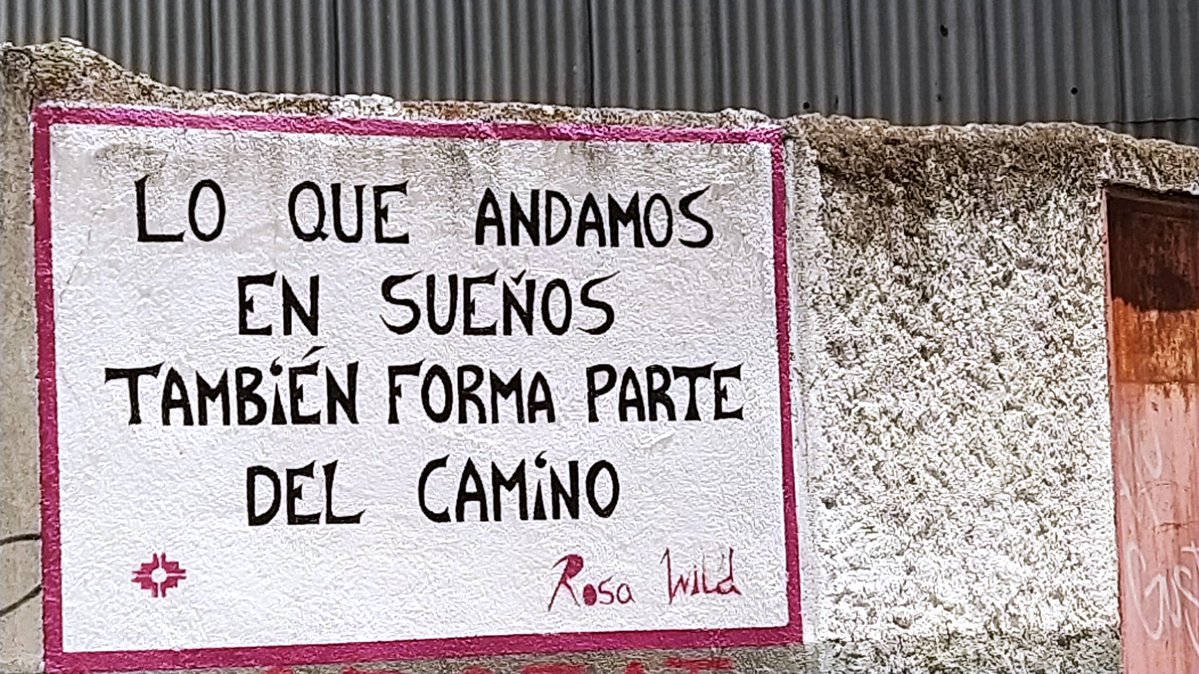 LO QUE ANDAMOS
EN SUEÑOS
TAMBiÉN FORMA PARTE
DEL CAMiNO
Rosa Wild